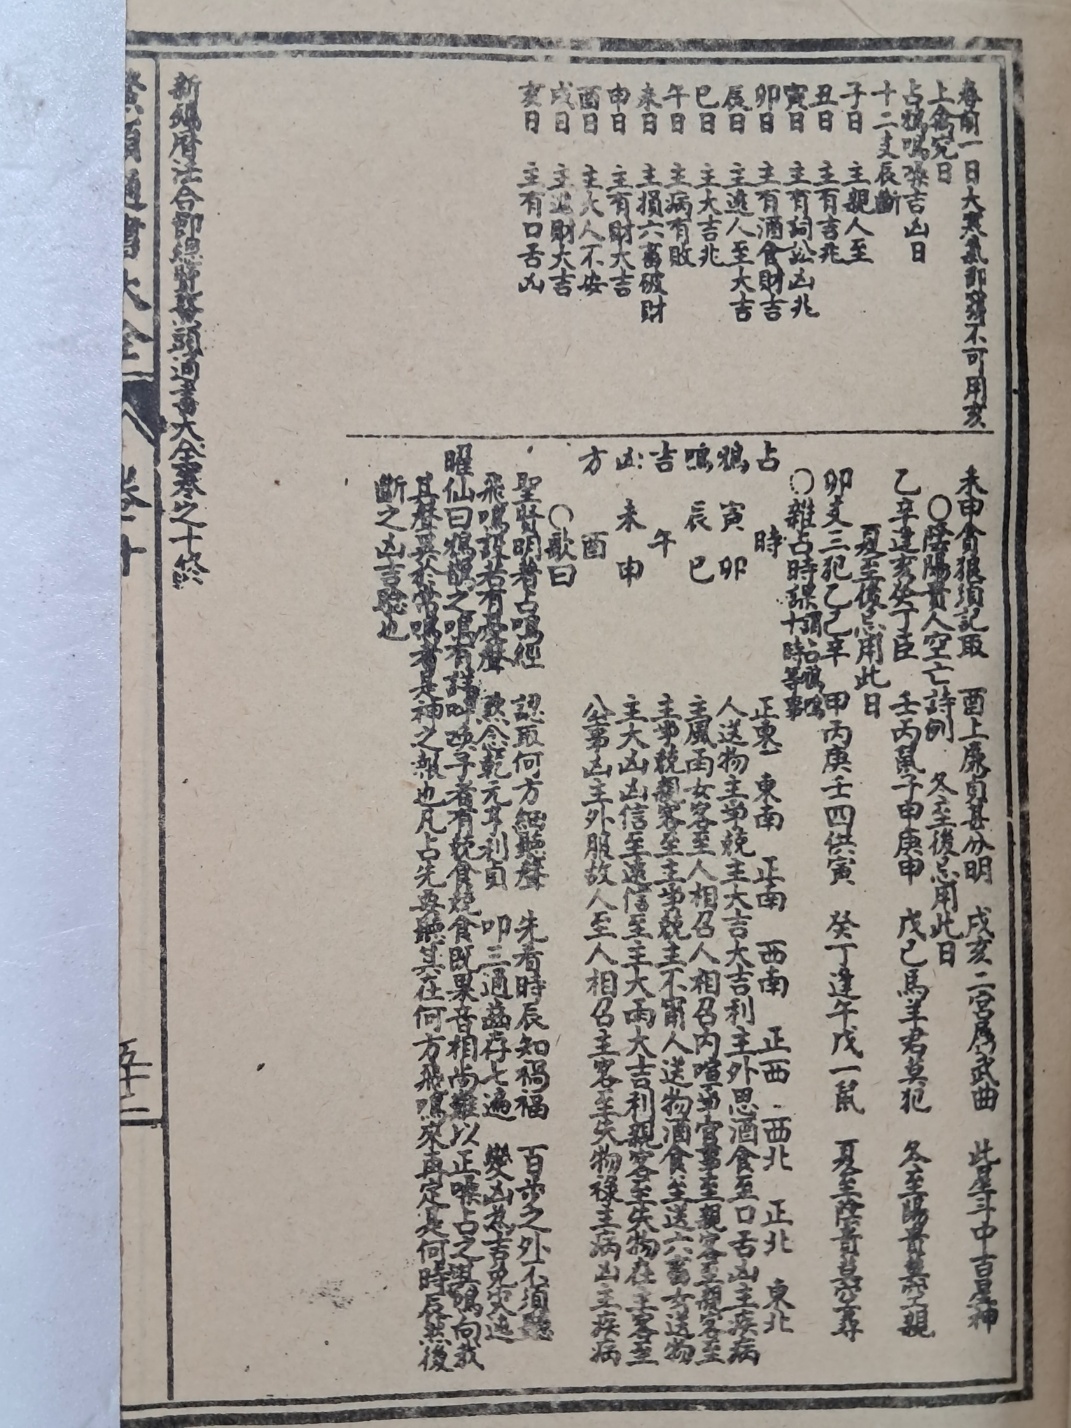 春前一日大寒氣即殯不可用亥
上禽兇日
占鴉鳴噪吉凶日
十二支辰斷
子日　主親人至
丑日　主有吉兆
寅日　主有詞訟凶兆
卯日　主有酒食財吉
辰日　主遠人至大吉
巳日　主大吉兆
午日　主病有敗
未日　主損六畜破財
申日　主有財大吉
酉日　主火人不安
戌日　主進財大吉
亥日　主有口舌凶
未申貪狼須記取　酉上廉貞甚分明　戌亥二宮為武曲　此是斗中吉星神
○陰陽貴人空亡詩例　冬至後忌用此日
乙辛逢亥癸丁臣　壬丙鼠子申庚申　戊己馬羊君莫犯　冬至陽貴莫空親
夏至後忌用此日
卯支三犯乙乙辛　甲丙庚壬四供寅　癸丁逢午戊一鼠　夏至陰貴莫空尊
○雜占時課
占　時　正東　東南　正南　西南　正西　西北　正北　東北
鴉　寅卯　人送物主爭競主大吉大吉利主外思酒食至口舌凶主疾病
鳴　辰巳　主風雨女客至人相召人相召內喧爭官事至親客至親客至
吉　午　主爭競親客至主爭競主不甯人送物酒食主送六畜女送物
凶　未申　主大凶凶信至遠信至主大雨大吉利親客至失物在主客至
方　酉　公事凶主外服故人至人相召主客至失物祿主病凶主疾病
○歌曰
聖賢明著占鳴經　認取何方細聽聲　先看時辰知禍福　百步之外不須聽
飛鳴設若有凶聲　熟念乾元亨利貞　叩三通齒存七遍　變凶為吉免災迍
曜仙曰鴉鵲之鳴有詳呼喚子者有飲食競食既果音相尚難以正噪占之其鳴向我
其聲異於常鳴者是神之報也凡占先要聽其在何方飛鳴來再定是何時辰然後
斷之凶吉驗也
新鐫曆法合節總覽鰲頭通書大全卷之十終
鰲頭通書大全　卷十　五十二